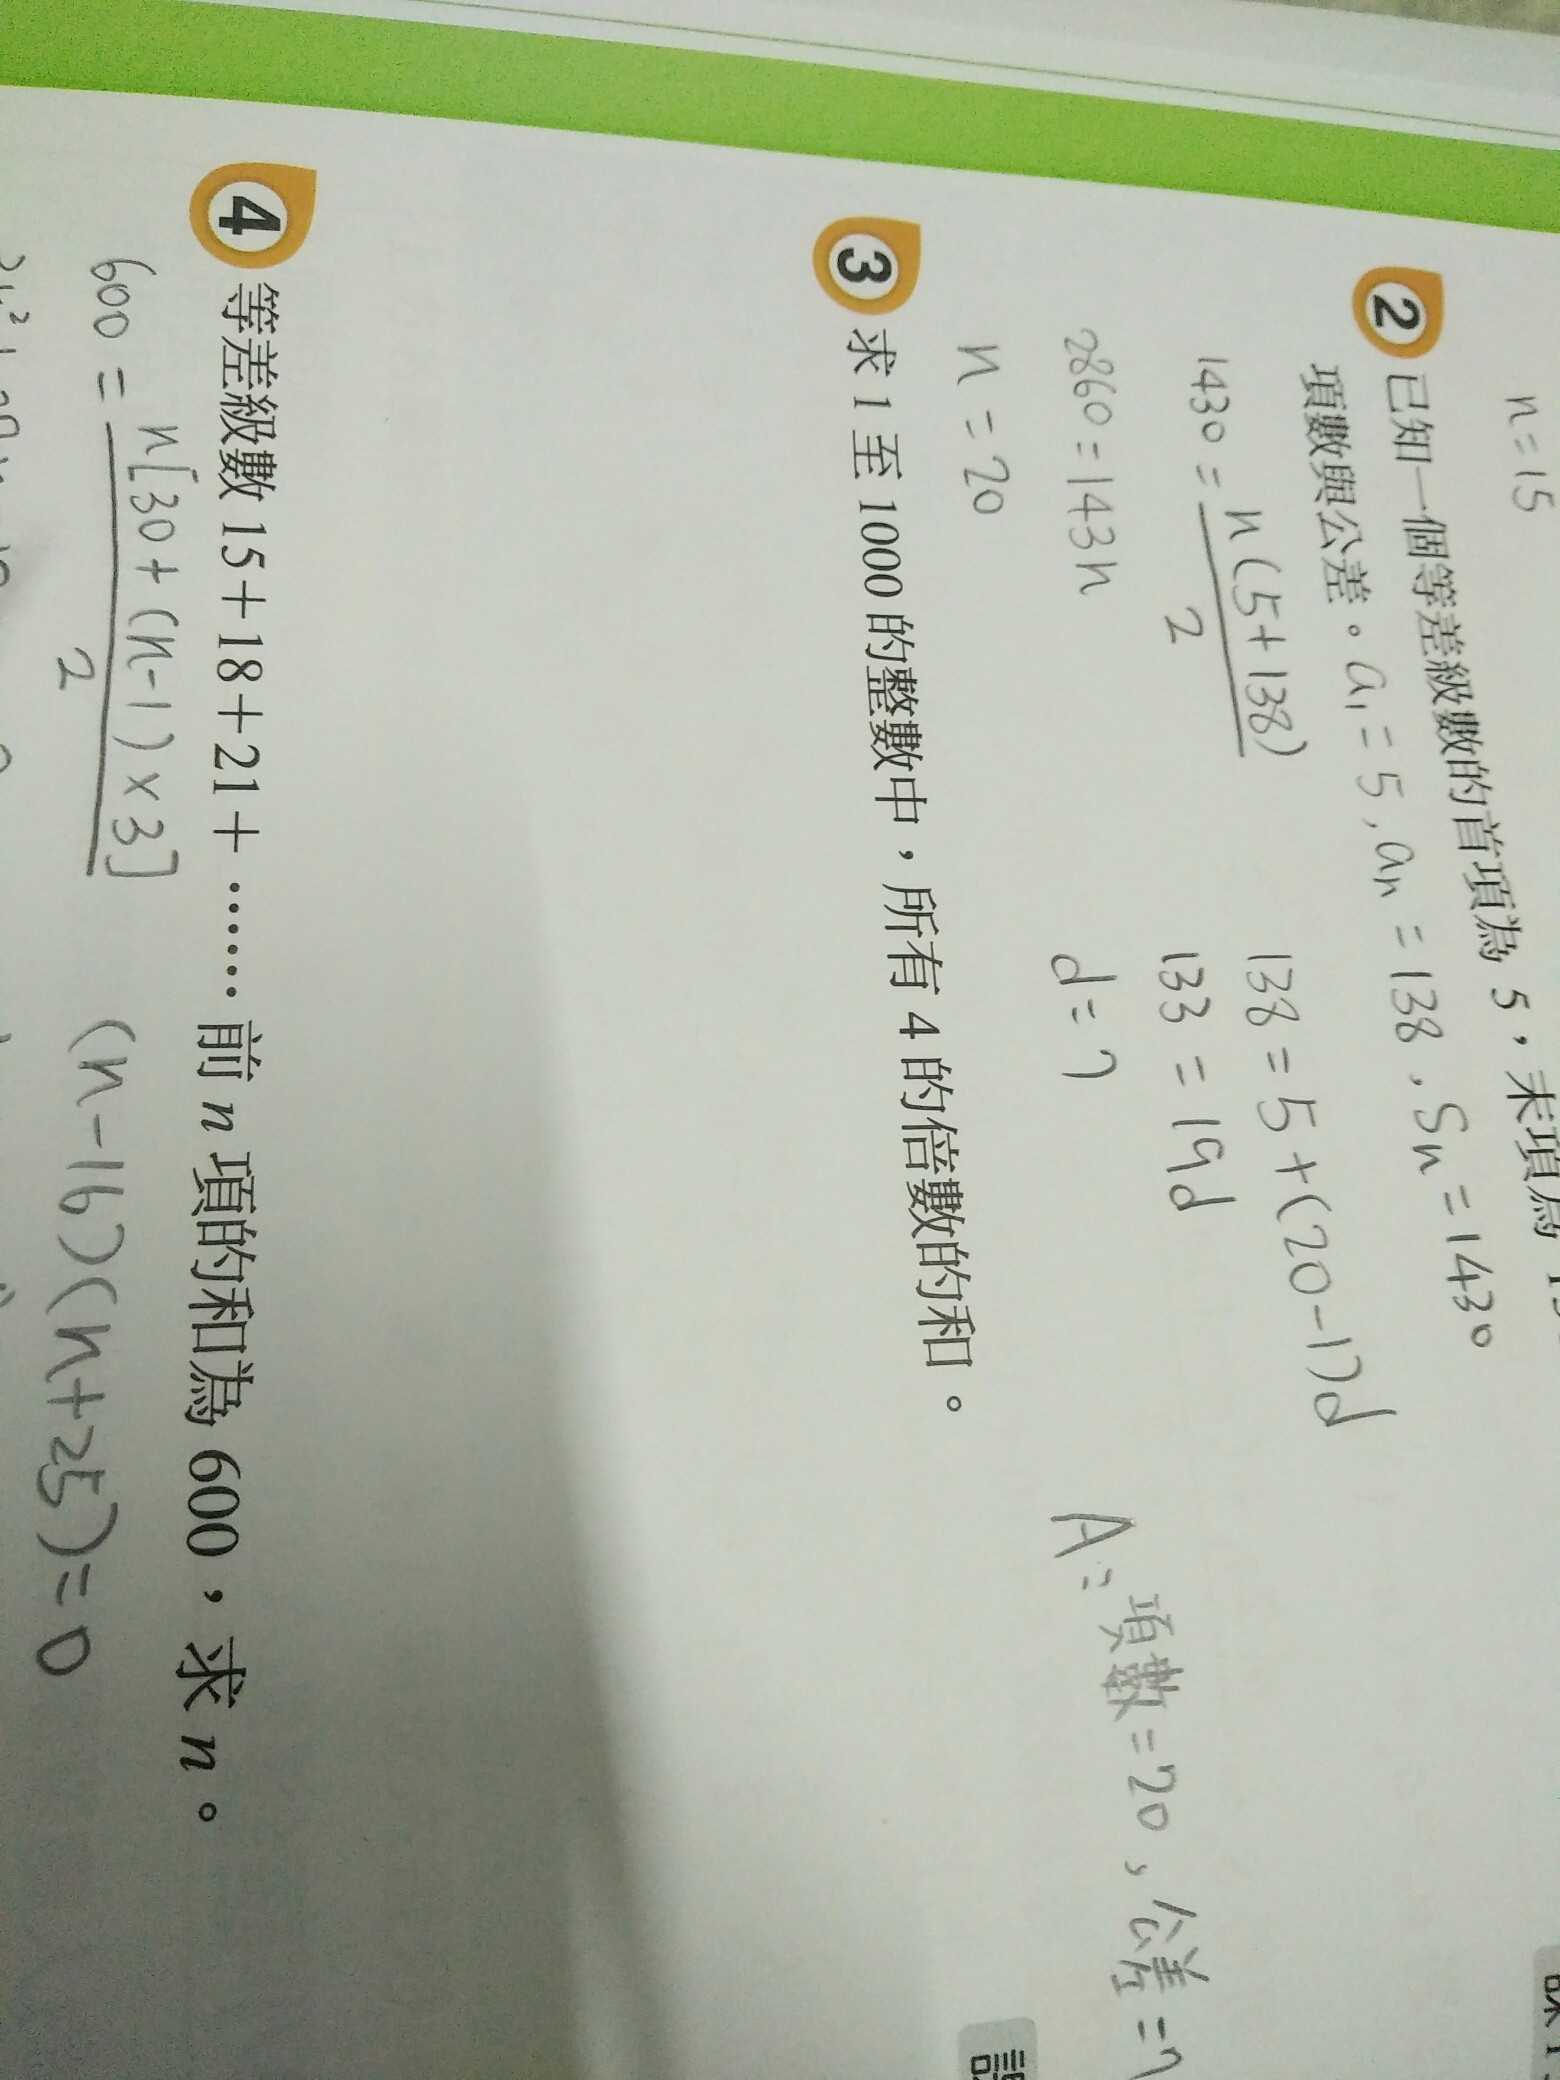 n=15
② 已知一個等差級數的首項為 5，末項為
項數與公差。a₁=5，aₙ=138，Sn=1430
1430=n(5+138)/2
138=5+(20-1)d
2860=143n
133=19d
n=20
d=7
A：項數=20，公差=7
③ 求 1 至 1000 的整數中，所有 4 的倍數的和。
④ 等差級數 15+18+21+…… 前 n 項的和為 600，求 n。
600=n[30+(n-1)×3]/2
(n-16)(n+25)=0